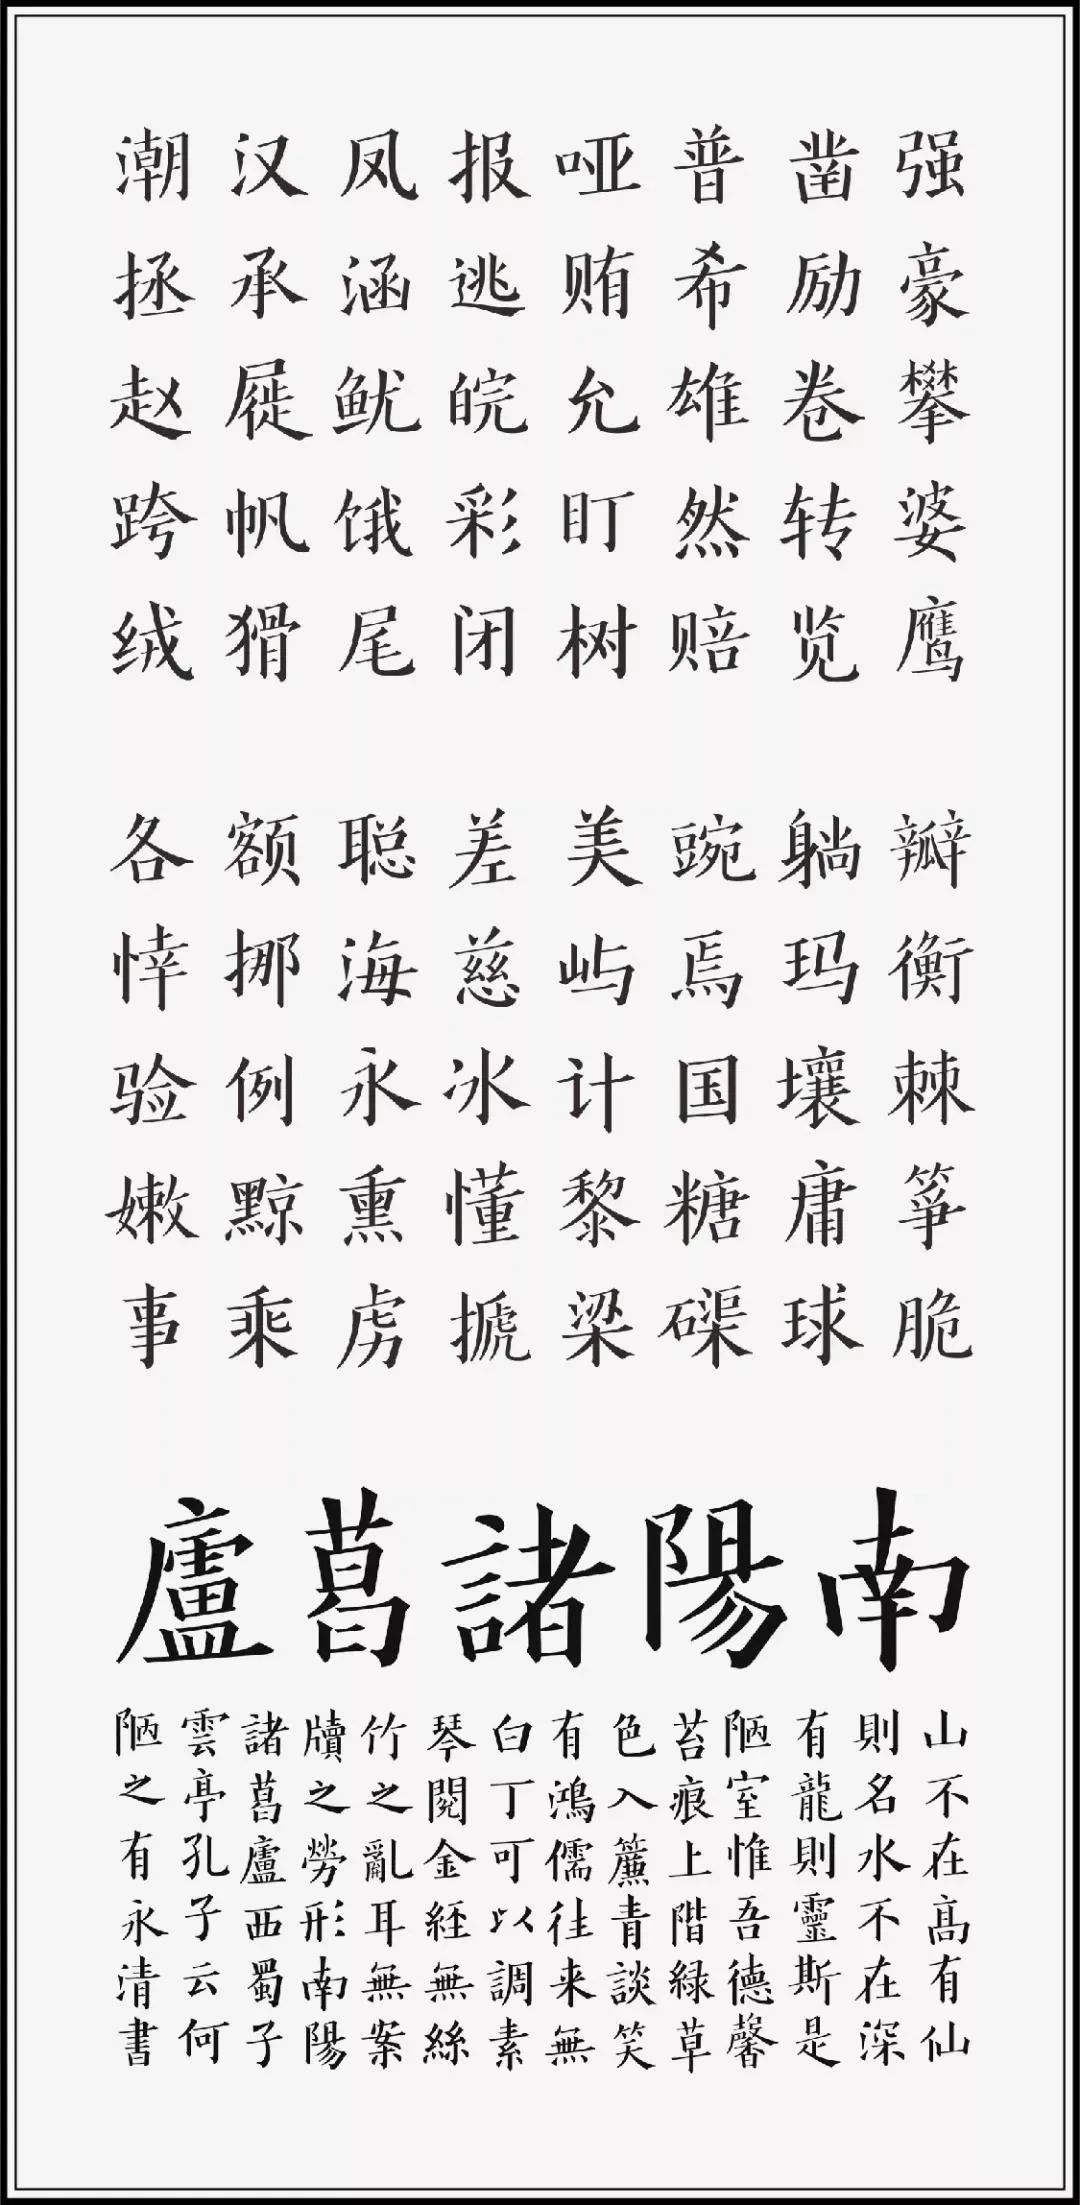 潮汉凤报哑普凿强
拯承涵逃贿希励豪
赵屣鱿皖允雄卷攀
跨帆饿彩盯然转婆
绒猾尾闭树赔览鹰
各额聪差美豌躺瓣
悻挪海慈屿焉玛衡
验例永冰计国壤棘
嫩黥熏懂黎糖庸筝
事乘虏搋梁磲球脆
南陽諸葛廬
山不在高有仙
則名水不在深
有龍則靈斯是
陋室惟吾德馨
苔痕上階緑草
色入簾青談笑
有鴻儒往来無
白丁可以調素
琴閲金経無絲
竹之亂耳無案
牘之勞形南陽
諸葛廬西蜀子
雲亭孔子云何
陋之有永清書